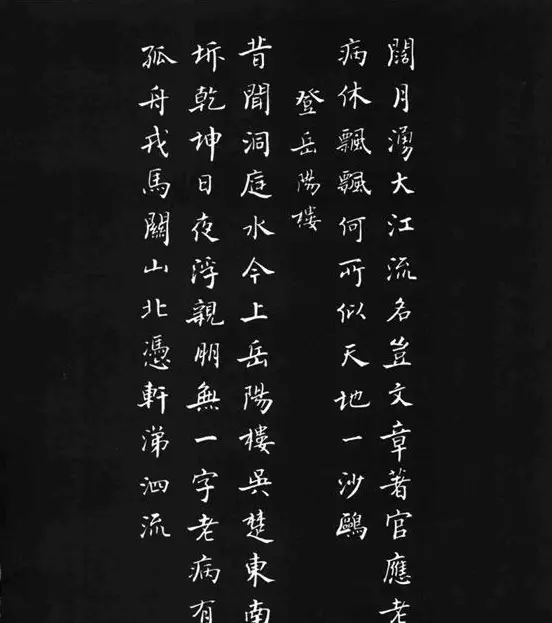 闊月湧大江流名豈文章著官應老
病休飄飄何所似天地一沙鷗
登岳陽樓
昔聞洞庭水今上岳陽樓吳楚東南
坼乾坤日夜浮親朋無一字老病有
孤舟戎馬關山北憑軒涕泗流